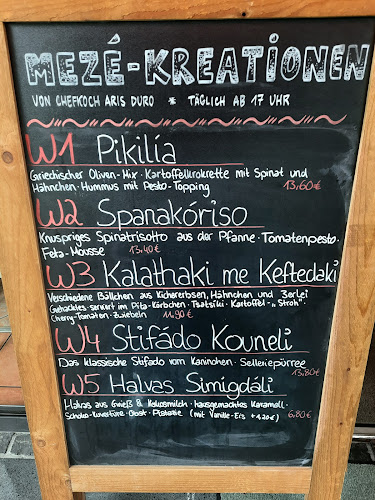 MEZÉ-KREATIONEN
VON CHEFKOCH ARIS DURO * TÄGLICH AB 17 UHR
W1 Pikilía
Griechischer Oliven-Mix · Kartoffelkrokette mit Spinat und
Hähnchen · Hummus mit Pesto-Topping 13,60€
W2 Spanakóriso
Knuspriges Spinatrisotto aus der Pfanne · Tomatenpesto ·
Feta-Mousse 13,40€
W3 Kalathaki me Keftedaki
Verschiedene Bällchen aus Kichererbsen, Hähnchen und 3erlei
Gehacktes · serviert im Pita-Körbchen · Tsatsiki · Kartoffel-"Stroh" ·
Cherry-Tomaten · Zwiebeln 11,90€
W4 Stifádo Kouneli
Das klassische Stifado vom Kaninchen · Selleriepürree
13,80€
W5 Halvas Simigdáli
Halvas aus Grieß & Kokosmilch · hausgemachtes Karamell ·
Schoko-Kuvertüre · Obst · Pistazie (mit Vanille-Eis + 1,20€) 6,80€